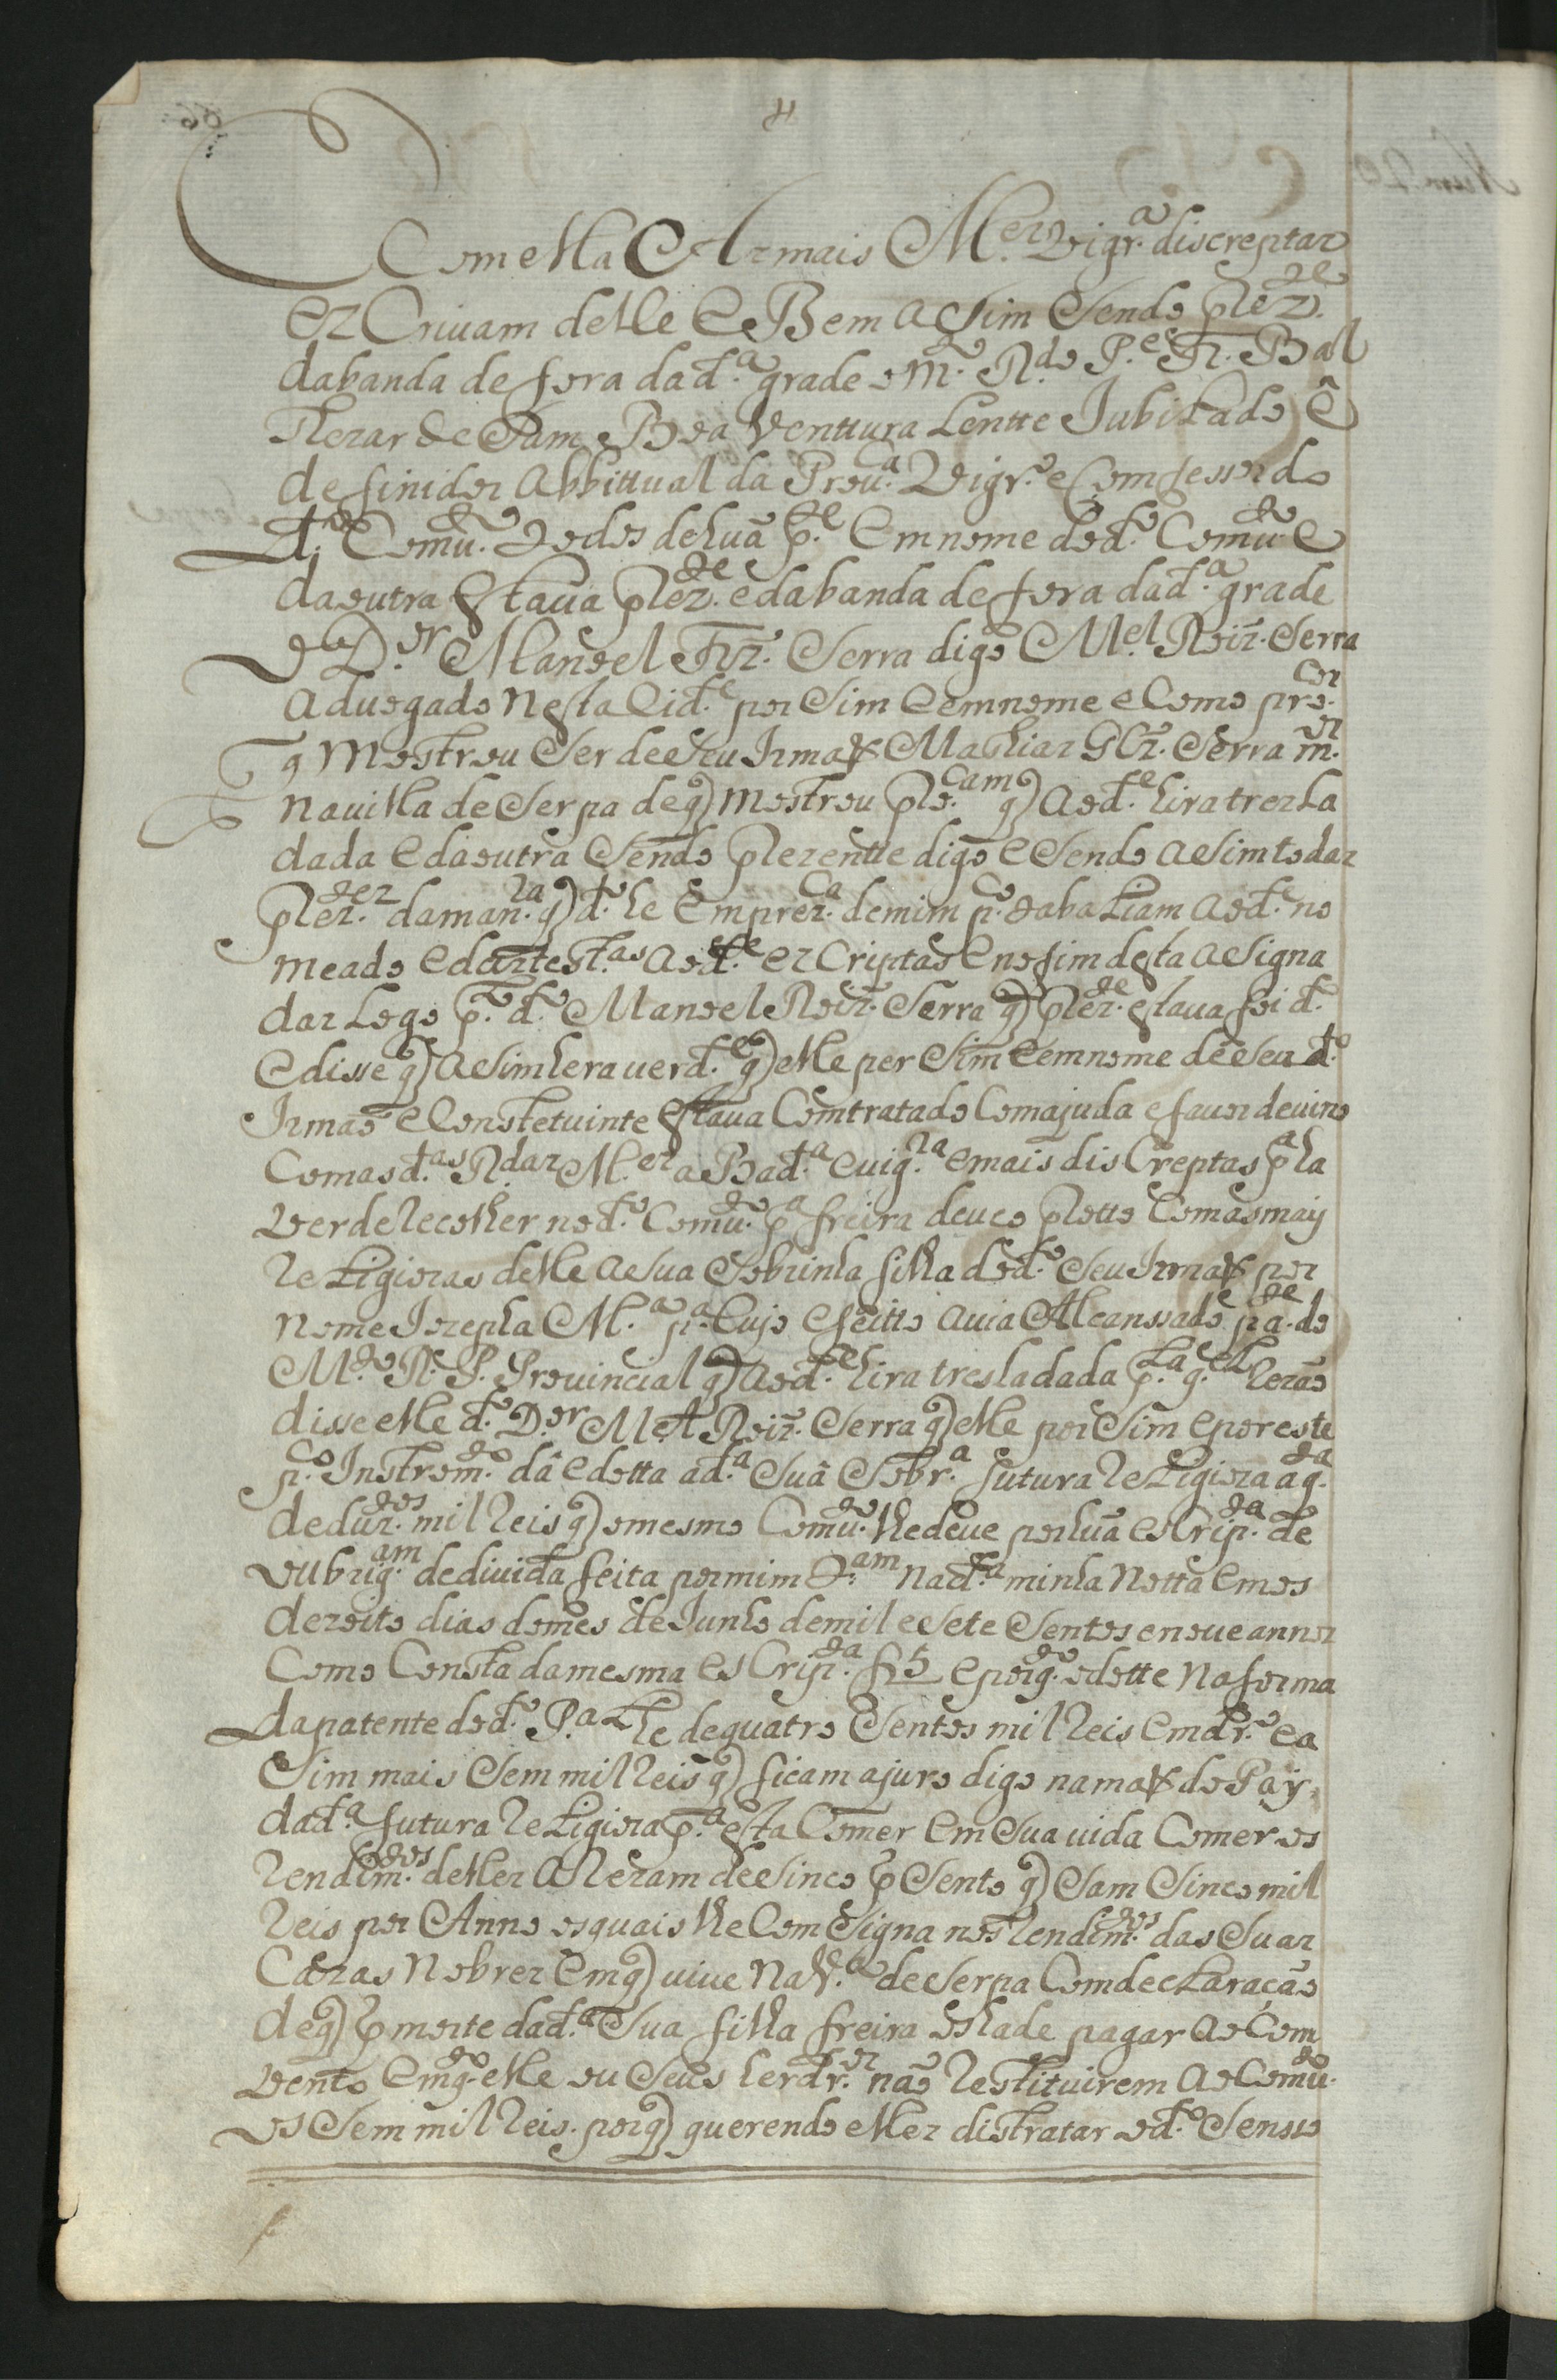 Com ella As mais M.es Vigr.a discreptas
EsCrivam delle E Bem aSim Sendo prez.te
dabanda de fora dad.a grade o M.to R.do P.e Fr. Bal
Thezar de Sam Boa Venttura Lentte Jubilado E
definidor Abbittual da Prou.ca Vigr.o e Comfessor do
d.o Comu.to Todos dehuã p.te Em nome dod.o Comu.to E
daoutra Estaua prez.te e da banda de fora dad.a grade
o D.or Manoel Frz. Serra digo M.el Roiz. Serra
aduogado nesta Cid.e por Sim Eemnome e Como pro.cor
q Mostrou Ser de Seu Irmaõ Mathias Glz. Serra m.or
na uilla de Serpa de q) mostrou pro.cam q) aod.te hira trezla
dada E daoutra Sendo prezentte digo E Sendo aSim todas
prez.tes daman.ra q) d.o he Em prez.ca demim p.co tabaliam aod.te no
meado E dastest.as aod.te esCriptas E no fim desta aSigna
das Logo p.lo d.o Manoel Roiz. Serra q) prez.te estaua foi d.o
E disse q) aSim hera uerd.e q) elle por Sim Eemnome de Seu d.o
Irmaõ e Constetuinte Estaua Comtratado Com ajuda e fauor deuino
Com as d.as R.das M.es aBad.a e uig.ra e mais disCreptas p.a ha
ver de Recolher nod.o Comu.to p.a freira deueo pretto Com as maiz
ReLigiozas delle a Sua Sobrinha filha dod.o Seu Irmaõ por
nome Jozepha M.a p.a Cujo efeitto auia Alcanssado pa.te do
M.to R. P. Prouincial q) aod.te hira tresladada p.la q.el Rezaõ
disse elle d.o D.or M.el Roiz. Serra q) elle por Sim E por este
p.co Instrom.to dâ e dotta ad.a Suâ Sobr.a futura ReLigioza a q.ta
de duz.tos mil Reis q) omesmo Comu.to lhe deue por huã esCrip.ta de
oubrig.am de diuida feita por mim T.am nad.a minha Notta Emos
dezoito dias domes de Junho de mil e Sete Sentos e noue annos
Como Consta damesma esCrip.ta f 5 E porq.to o dotte na forma
da patente dod.o P.al he de quatro Sentos mil Reis Em dr.o ea
Sim mais Sem mil Reis q) ficam ajuro digo na maõ do Pay
dad.a futura ReLigioza p.a esta Comer Em Sua uida Comer os
Rendim.tos delles a Rezam de Sinco p Sento q) Sam Sinco mil
Reis por Anno os quais lhe ComSigna nos Rendim.tos das Suas
Cazas Nobrez Em q) uiue na V.a de Serpa Com decLaraçaõ
de q) p morte dad.a Sua filha freira os hade pagar ao Com
vento Emq.to elle ou Seus herdr.os naõ Restituirem ao Comu.to
os Sem mil Reis. porq) querendo elles distratar od.o Sensso